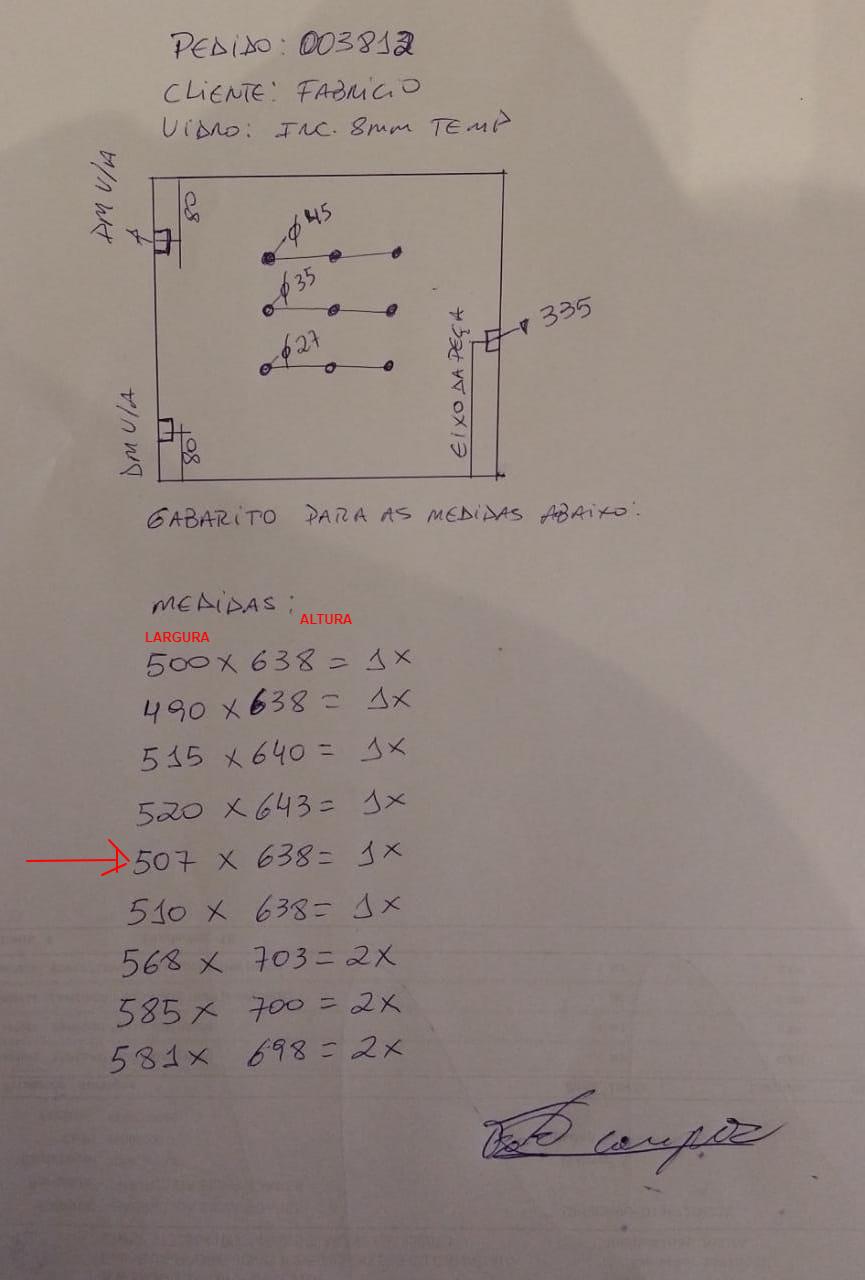 PEDIDO: 003812
CLIENTE: FABRICIO
VIDRO: INC. 8mm TEMP
DM V/A
80
ϕ45
ϕ35
335
ϕ27
EIXO DA PEÇA
DM V/A
80
GABARITO PARA AS MEDIDAS ABAIXO:
MEDIDAS:
ALTURA
LARGURA
500 x 638 = 1x
490 x 638 = 1x
515 x 640 = 1x
520 x 643 = 1x
507 x 638 = 1x
510 x 638 = 1x
568 x 703 = 2x
585 x 700 = 2x
581 x 698 = 2x